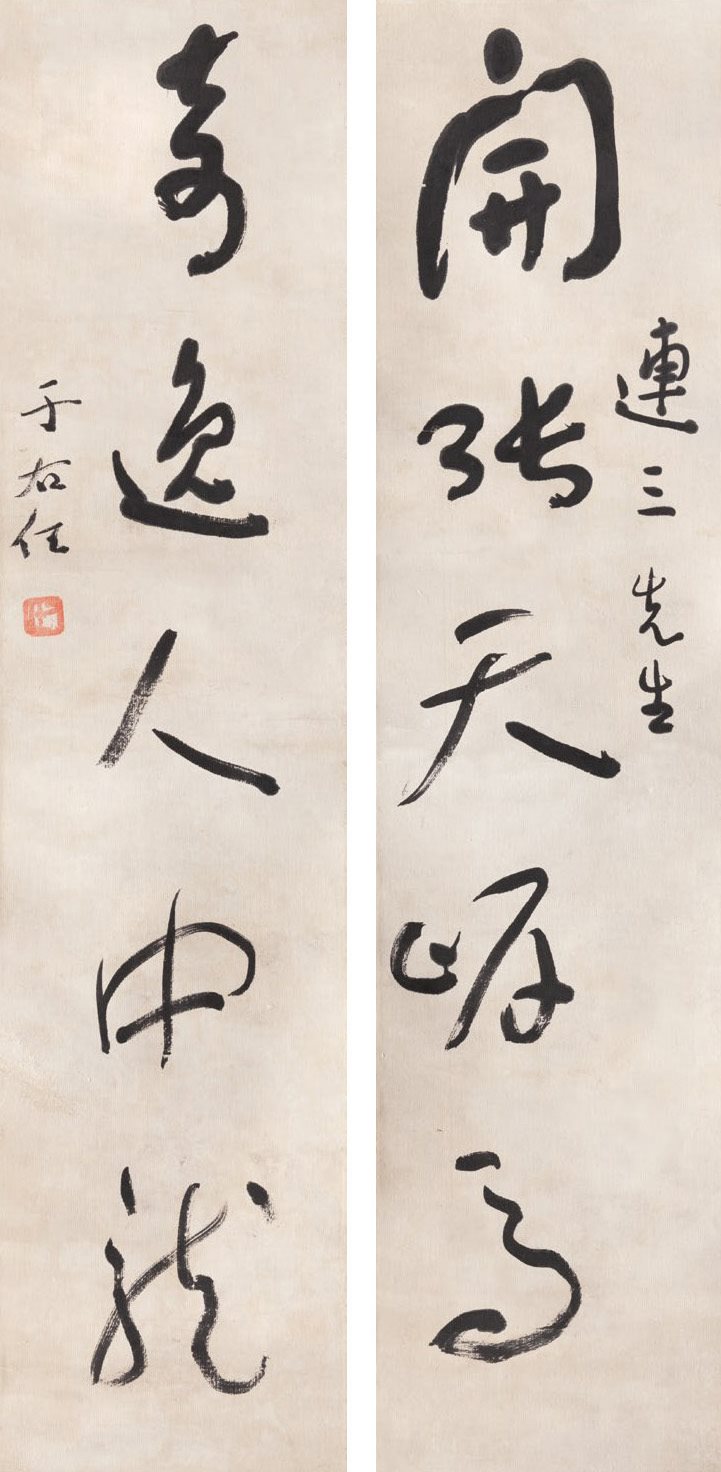 連三先生
開張天岸馬
奇逸人中龍
于右任